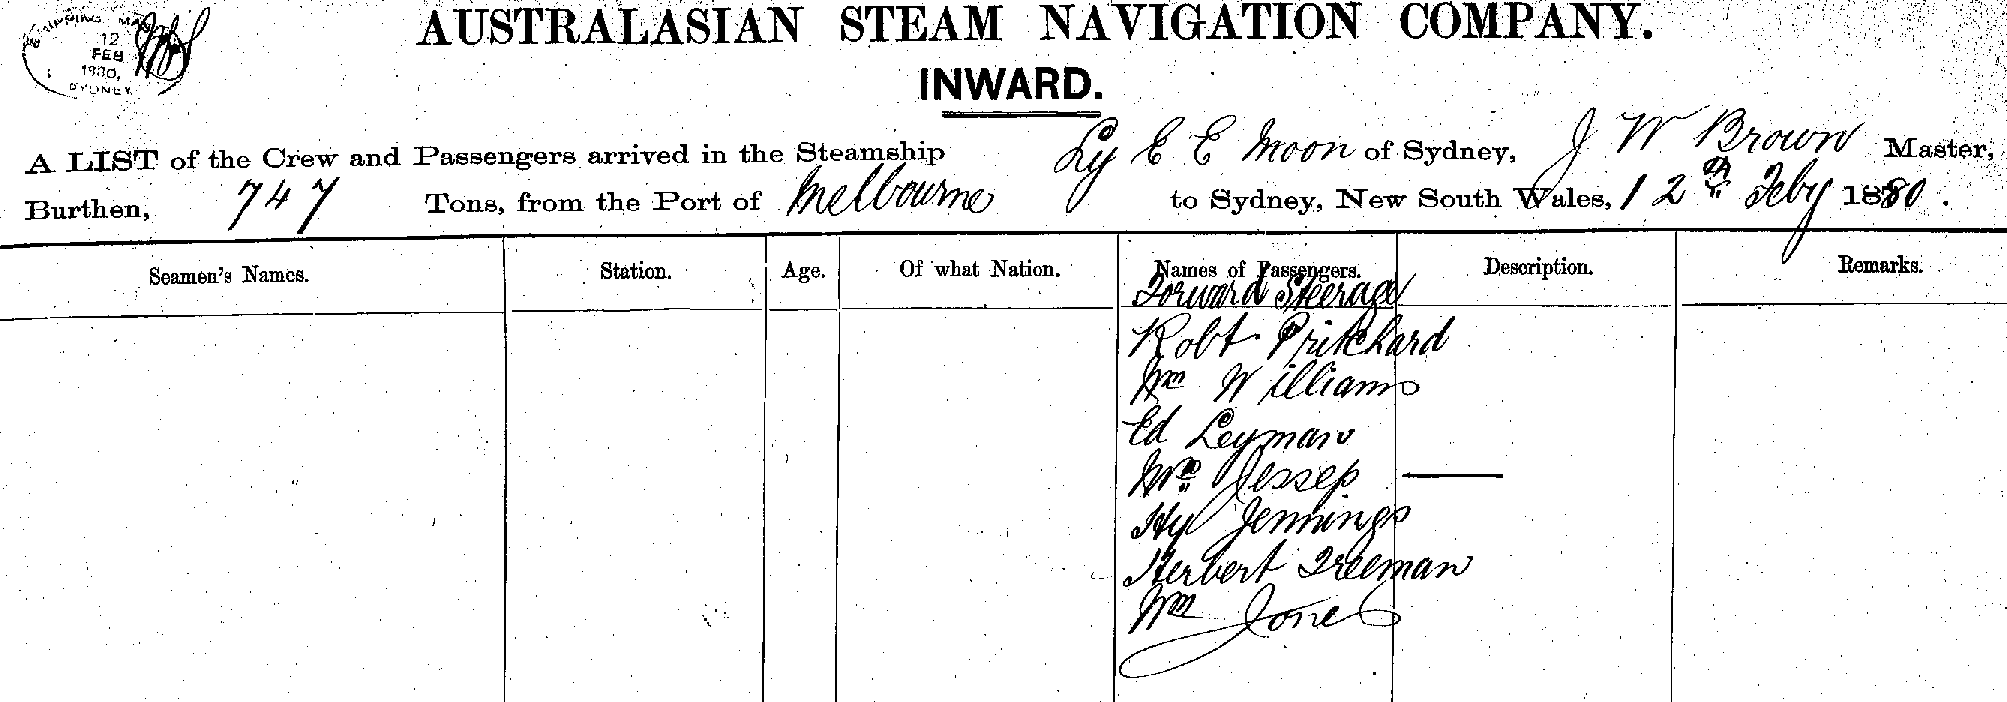 SHIPPING MA
12
FEB
1880,
SYDNEY
AUSTRALASIAN STEAM NAVIGATION COMPANY.
INWARD.
A LIST of the Crew and Passengers arrived in the Steamship Ly E E Moon of Sydney, J W Brown Master,
Burthen, 747 Tons, from the Port of Melbourne to Sydney, New South Wales, 12th Feby 1880.
Seamen's Names. Station. Age. Of what Nation. Names of Passengers. Description. Remarks.
Forward Steerage
Robt Pritchard
Wm Williams
Ed Leyman
Jessep
Hy Jennings
Herbert Freeman
Wm Jones